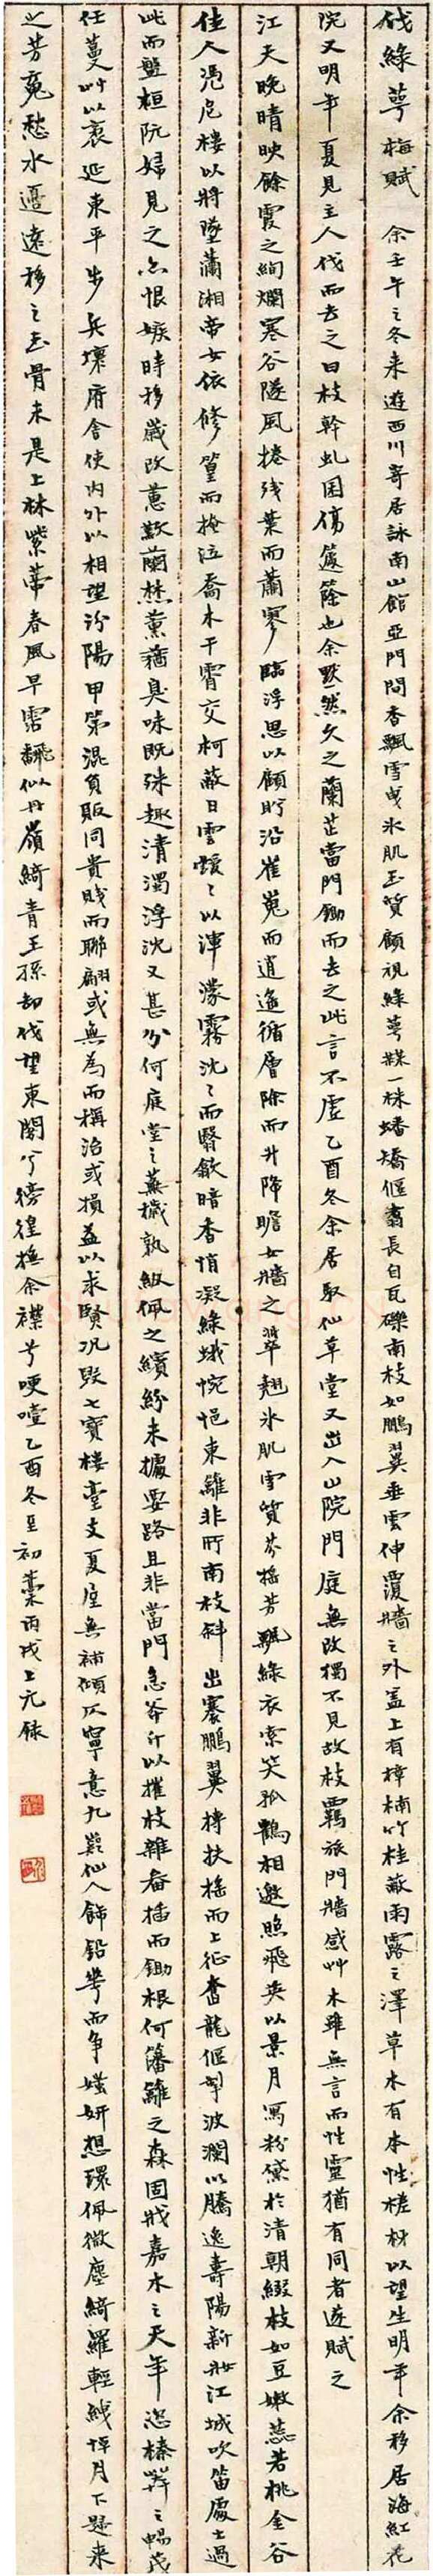 伐綠萼梅賦 余壬午之冬来遊西川寄居詠南山館亞門間香飄雪曳氷肌玉質顧視綠萼梅一株蟠矯偃蹇長自瓦礫南枝如鵬翼垂雲伸覆牆之外蓋上有樟楠竹桂蔽雨露之澤草木有本性槎材以望生明年余移居海紅花
院又明年夏見主人伐而去之曰枝幹虬困傷籧篨也余默然久之蘭芷當門鋤而去之此言不虛乙酉冬余居取仙草堂又出入山院門庭無改獨不見故枝羈旅門牆感艸木雖無言而性靈猶有同者遂賦之
江天晚晴映餘霞之絢爛寒谷隧風捲殘葉而蕭寥臨浮思以顧眄沿崔嵬而逍遙循層除而升降瞻女牆之翠翹氷肌雪質芬搖芳飄綠衣索笑孤鶴相邀照飛英以景月寫粉黛於清朝綴枝如豆嫩蕊若桃金谷
佳人憑危樓以將墜瀟湘帝女依修篁而掩泣喬木干霄交柯蔽日雲靉靉以渾濛霧沈沈而翳歘暗香悄凝綠蛾惋悒東籬非所南枝斜出騫鵬翼摶扶搖而上征奮龍偃掣波瀾以騰逸壽陽新妝江城吹笛處士過
此而盤桓阮婦見之亦恨嫉時移歲改蕙歎蘭焚薰蕕臭味既殊趣清濁浮沈又甚分何庭堂之蕪穢孰紉佩之繽紛未據要路且非當門急斧斤以摧枝雜畚插而鋤根何藩籬之森固戕嘉木之天年恣榛莽之暢茂
任蔓艸以衺延東平步兵壞府舍使内外以相望汾陽甲第混負販同貴賤而聯翩或無為而稱治或損益以求賢況毀七寶樓臺支夏屋無補傾仄寧意九嶷仙人飾鉛華而争媸妍想環佩微塵綺羅輕綫恠月下歸来
之芳䰟愁水邊遠移之玉骨未是上林紫蒂春風早露翻似丹嶺綺青王孫却伐望東閣兮徬徨撫余襟兮哽噎乙酉冬至初藳丙戌上元錄